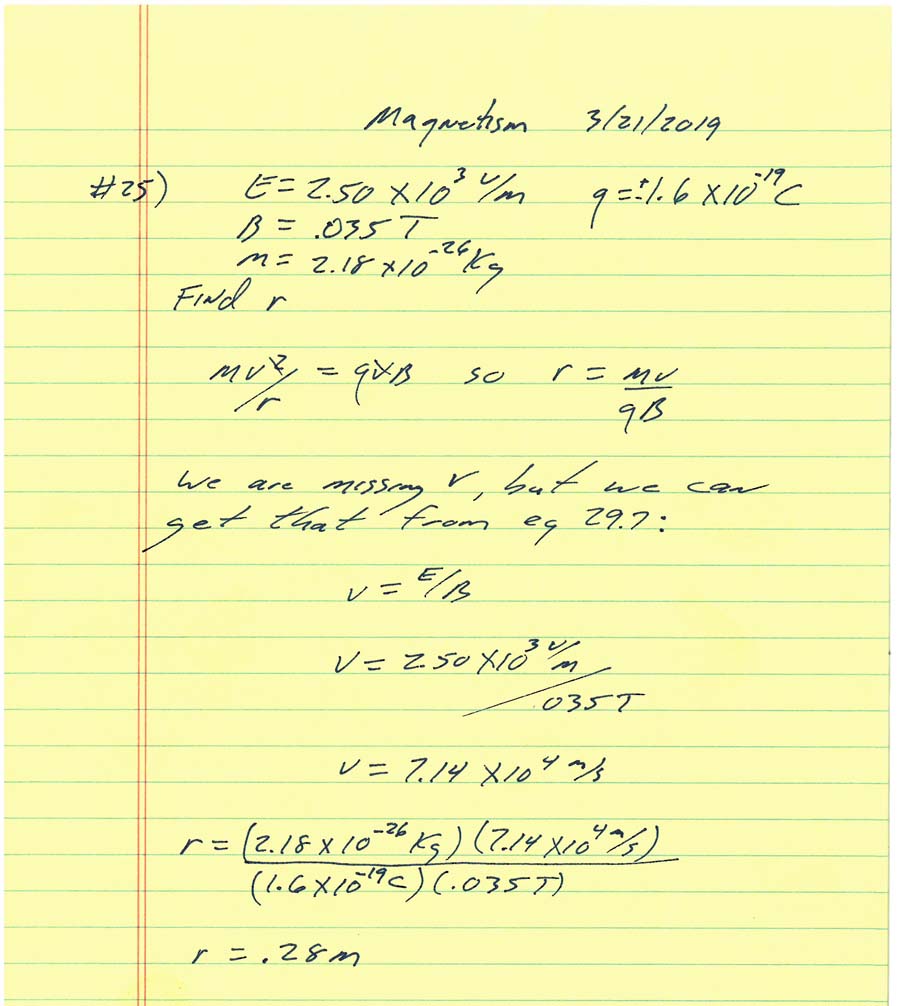 Magnetism 3/21/2019
#25) E = 2.50 x 10³ V/m q = ±1.6 x 10⁻¹⁹ C
B = .035 T
m = 2.18 x 10⁻²⁶ Kg
Find r
mv²/r = qvB so r = mv/qB
We are missing v, but we can
get that from eq 29.7:
v = E/B
v = 2.50 x 10³ V/m / .035 T
v = 7.14 x 10⁴ m/s
r = (2.18 x 10⁻²⁶ Kg) (7.14 x 10⁴ m/s) / (1.6 x 10⁻¹⁹ C) (.035 T)
r = .28 m